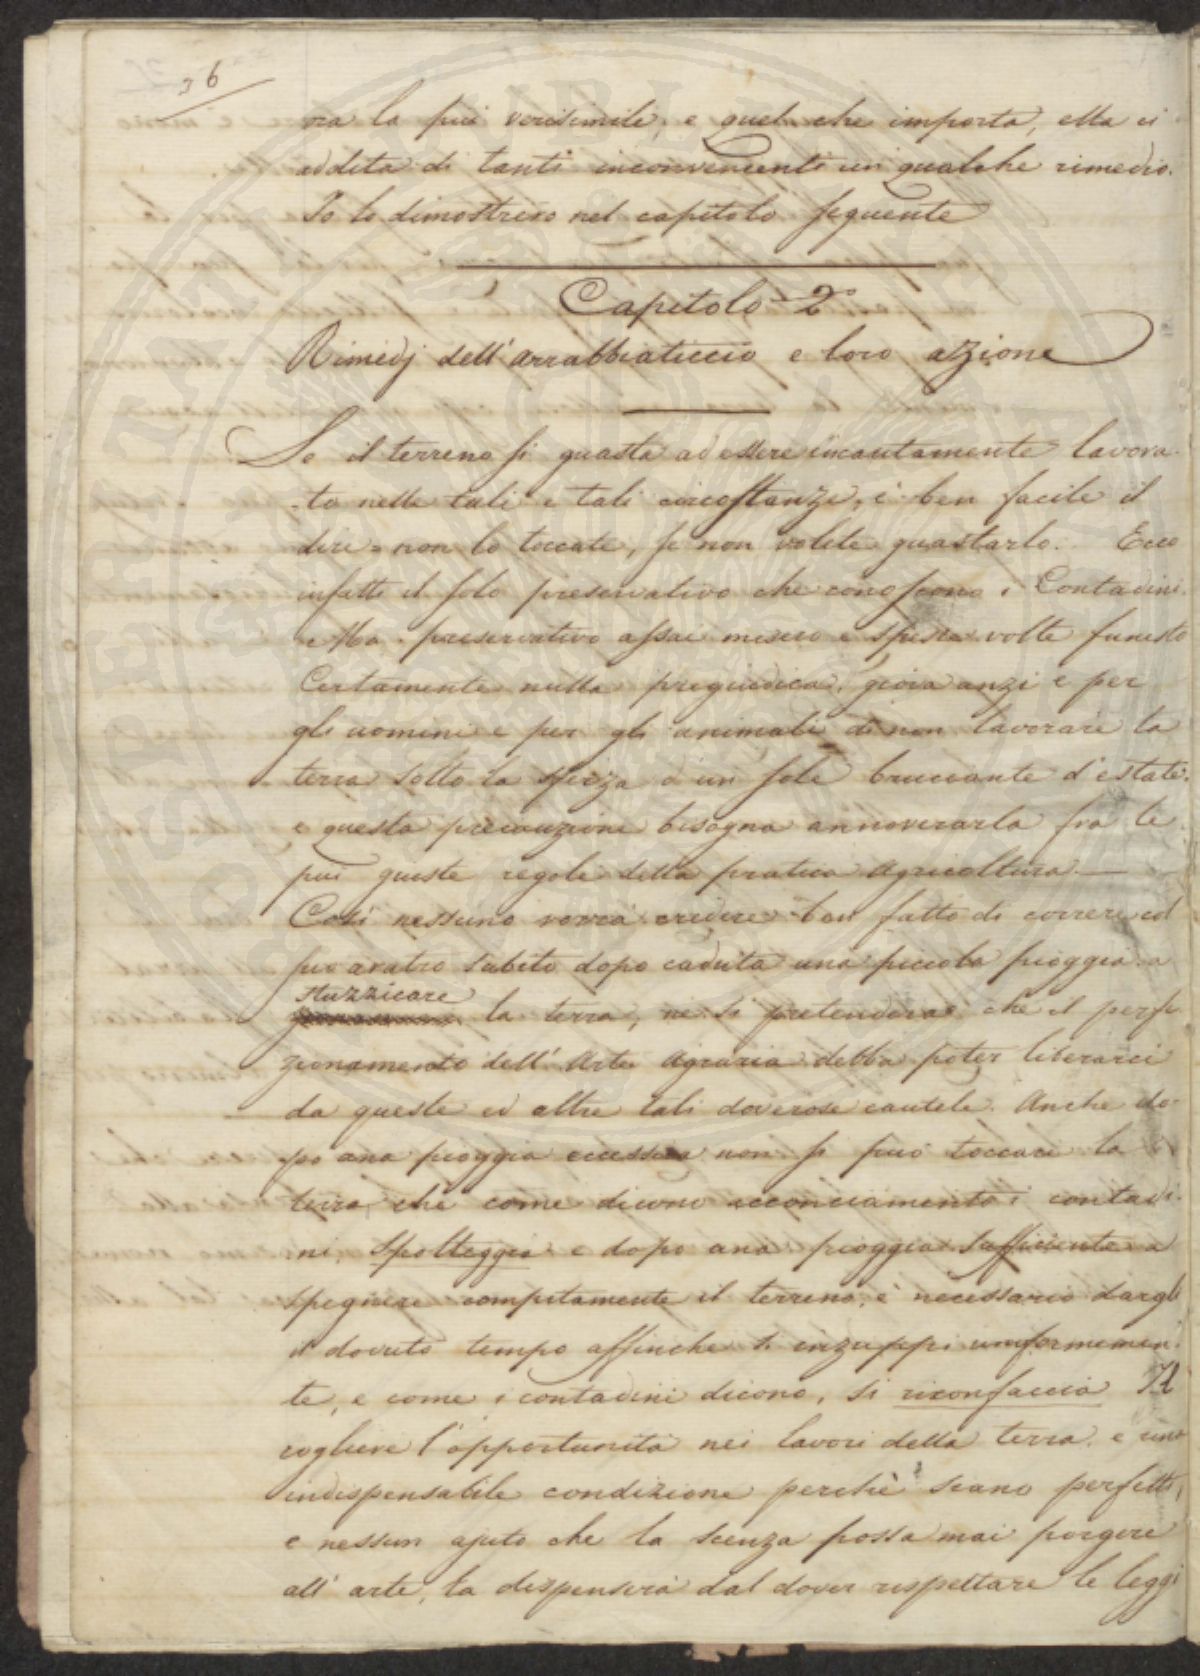 36
ra la più verisimile, e quel che importa, ella ci
addita di tanti inconvenienti un qualche rimedio.
Io lo dimostrero nel capitolo seguente
Capitolo 2°
Rimedj dell'arrabbiaticcio e loro azzione
Se il terreno si guasta ad essere incautamente lavora-
to nelle tali e tali circostanze, è ben facile il
dire = non lo toccate, se non volete guastarlo. Ecco
infatti il solo preservativo che conoscono i Contadini
Ma preservativo assai misero e spesse volte funesto
Certamente nulla pregiudica, giova anzi e per
gli uomini e per gli animali di non lavorare la
terra sotto la sferza d'un sole bruciante d'estate,
e questa precauzione bisogna annoverarla fra le
più giuste regole della pratica Agricoltura —
Così nessuno vorrà credere ben fatto di correre col
suo aratro subito dopo caduta una piccola pioggia a
stuzzicare
la terra, nè si pretenderà che il perfe
zionamento dell'Arte Agraria debba poter liberarci
da queste ed altre tali doverose cautele. Anche do-
po una pioggia eccessiva non si può toccare la
terra che come dicono acconciamente i contadi-
ni, spolteggia e dopo una pioggia sufficiente a
spegnere compitamente il terreno, è necessario dargli
il dovuto tempo affinche s'inzuppi uniformemen-
te, e come i contadini dicono, si riconfaccia Il
cogliere l'opportunità nei lavori della terra, è una
indispensabile condizione perchè siano perfetti,
e nessun ajuto che la scenza possa mai porgere
all'arte, la dispenserà dal dover rispettare le leggi